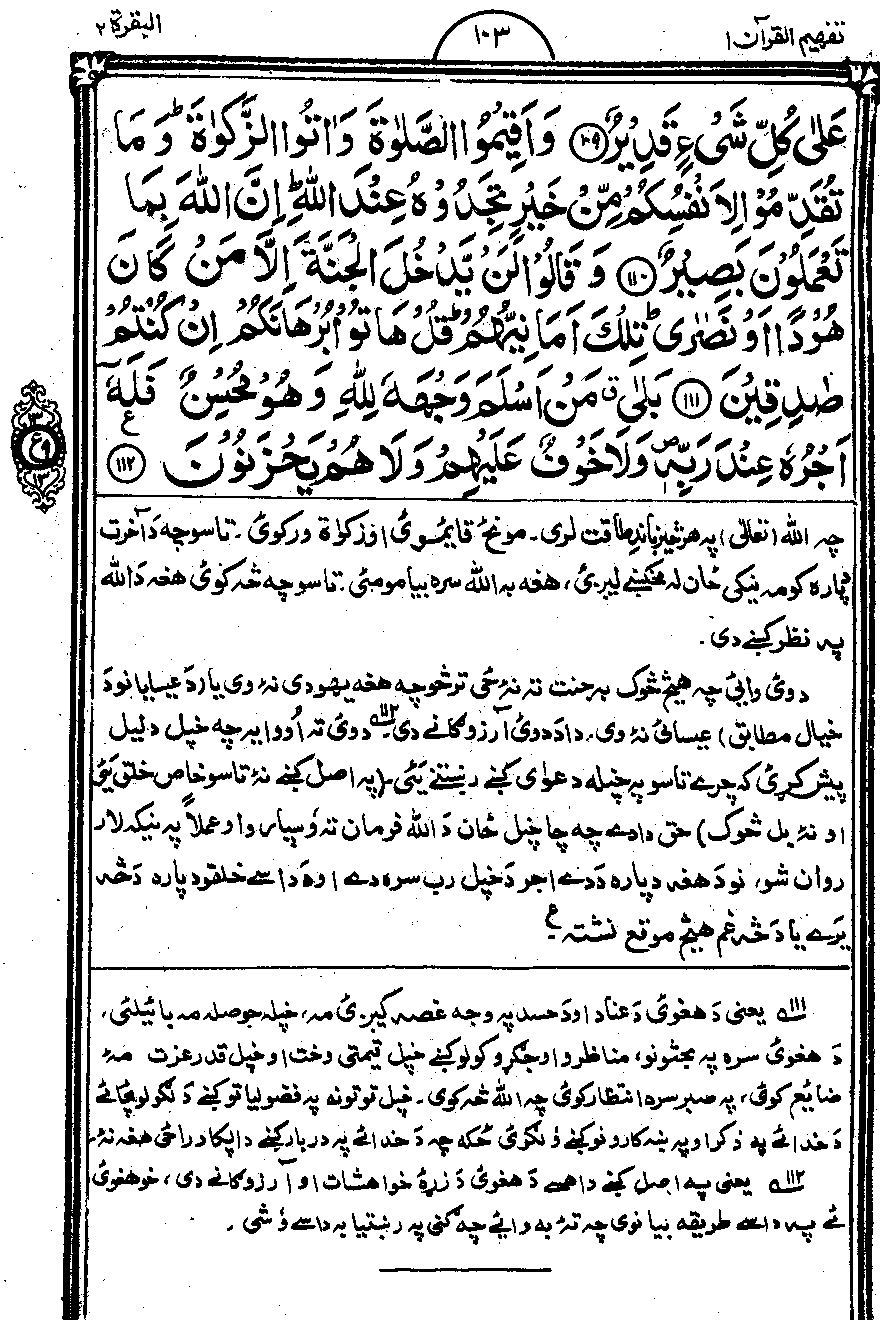 تفهیم القرآن ۱
۱۰۳
البقرة ۲
عَلٰى كُلِّ شَىْءٍ قَدِيْرٌ ۝۱۰۹ وَاَقِيْمُوا الصَّلٰوةَ وَاٰتُوا الزَّكٰوةَ ؕ وَمَا
تُقَدِّمُوْا لِاَنْفُسِكُمْ مِّنْ خَيْرٍ تَجِدُوْهُ عِنْدَ اللّٰهِ ؕ اِنَّ اللّٰهَ بِمَا
تَعْمَلُوْنَ بَصِيْرٌ ۝۱۱۰ وَقَالُوْا لَنْ يَّدْخُلَ الْجَنَّةَ اِلَّا مَنْ كَانَ
هُوْدًا اَوْ نَصٰرٰى ؕ تِلْكَ اَمَانِيُّهُمْ ؕ قُلْ هَاتُوْا بُرْهَانَكُمْ اِنْ كُنْتُمْ
صٰدِقِيْنَ ۝۱۱۱ بَلٰى ۗ مَنْ اَسْلَمَ وَجْهَهٗ لِلّٰهِ وَهُوَ مُحْسِنٌ فَلَهٗٓ
اَجْرُهٗ عِنْدَ رَبِّهٖ ۪ وَلَا خَوْفٌ عَلَيْهِمْ وَلَا هُمْ يَحْزَنُوْنَ ۝۱۱۲
ع
۱۳
۹
۱۳
چه الله (تعالٰی) په هر څیز باندې طاقت لری۔ مونځ قایمـوئ او زکواة ورکوئ۔ تاسو چه دَ آخرت
دپاره کومه نیکی ځان له مخکښې لیږئ، هغه به الله سره بیا مومئی۔ تاسو چه څه کوئ هغه دَ الله
په نظر کښې دی۔
دوئ وائی چه هیڅ څوک به جنت ته نهٔ ځی تر څو چه هغه یهودی نهٔ وی یا (دَ عیسایانو دَ
خیال مطابق) عیسائی نهٔ وی۔ دا دَ دوئ آرزوګانې دی۔۱۱۲ دوئ ته اُووایه چه خپل دلیل
پیش کړئ که چرے تاسو په خپله دعوای کښې رښتنے یَئ۔ (په اصل کښې نهٔ تاسو خاص خلق یَئ
او نهٔ بل څوک) حق دا دے چه چا خپل ځان دَ الله فرمان ته وُسپارو او عملاً په نیکه لار
روان شو، نو دَ هغه دپاره دَ دے اجر دَ خپل رب سره دے او دَ داسے خلقو دپاره دَ څه
یَرے یا دَ څه غم هیڅ موقع نشته۔ ع
۱۱۱ یعنی دَ هغوئ دَ عناد او دَ حسد په وجه غصه کیږئ مه، خپله حوصله مه بائیلئی،
دَ هغوئ سره په بحثونو، مناظرو او جګړو کولو کښې خپل قیمتی وخت او خپل قدر عزت مهٔ
ضایع کوئی، په صبر سره انتظار کوئ چه الله څه کوی۔ خپل توتونه په فضولیاتو کښې دَ لګولو بجائے
دَ خدائے په ذکر او په ښه کارونو کښې وُلګوئ ځکه چه دَ خدائے په دربار کښې دا پکار راځی هغه نهٔ۔
۱۱۲ یعنی په اصل کښې دا هسے دَ هغوئ دَ زړهٔ خواهشات او آرزوګانے دی، خو هغوئ
ئے په داسے طریقه بیانوی چه تهٔ به وائے چه ګنی په رښتیا به داسے وُشی۔